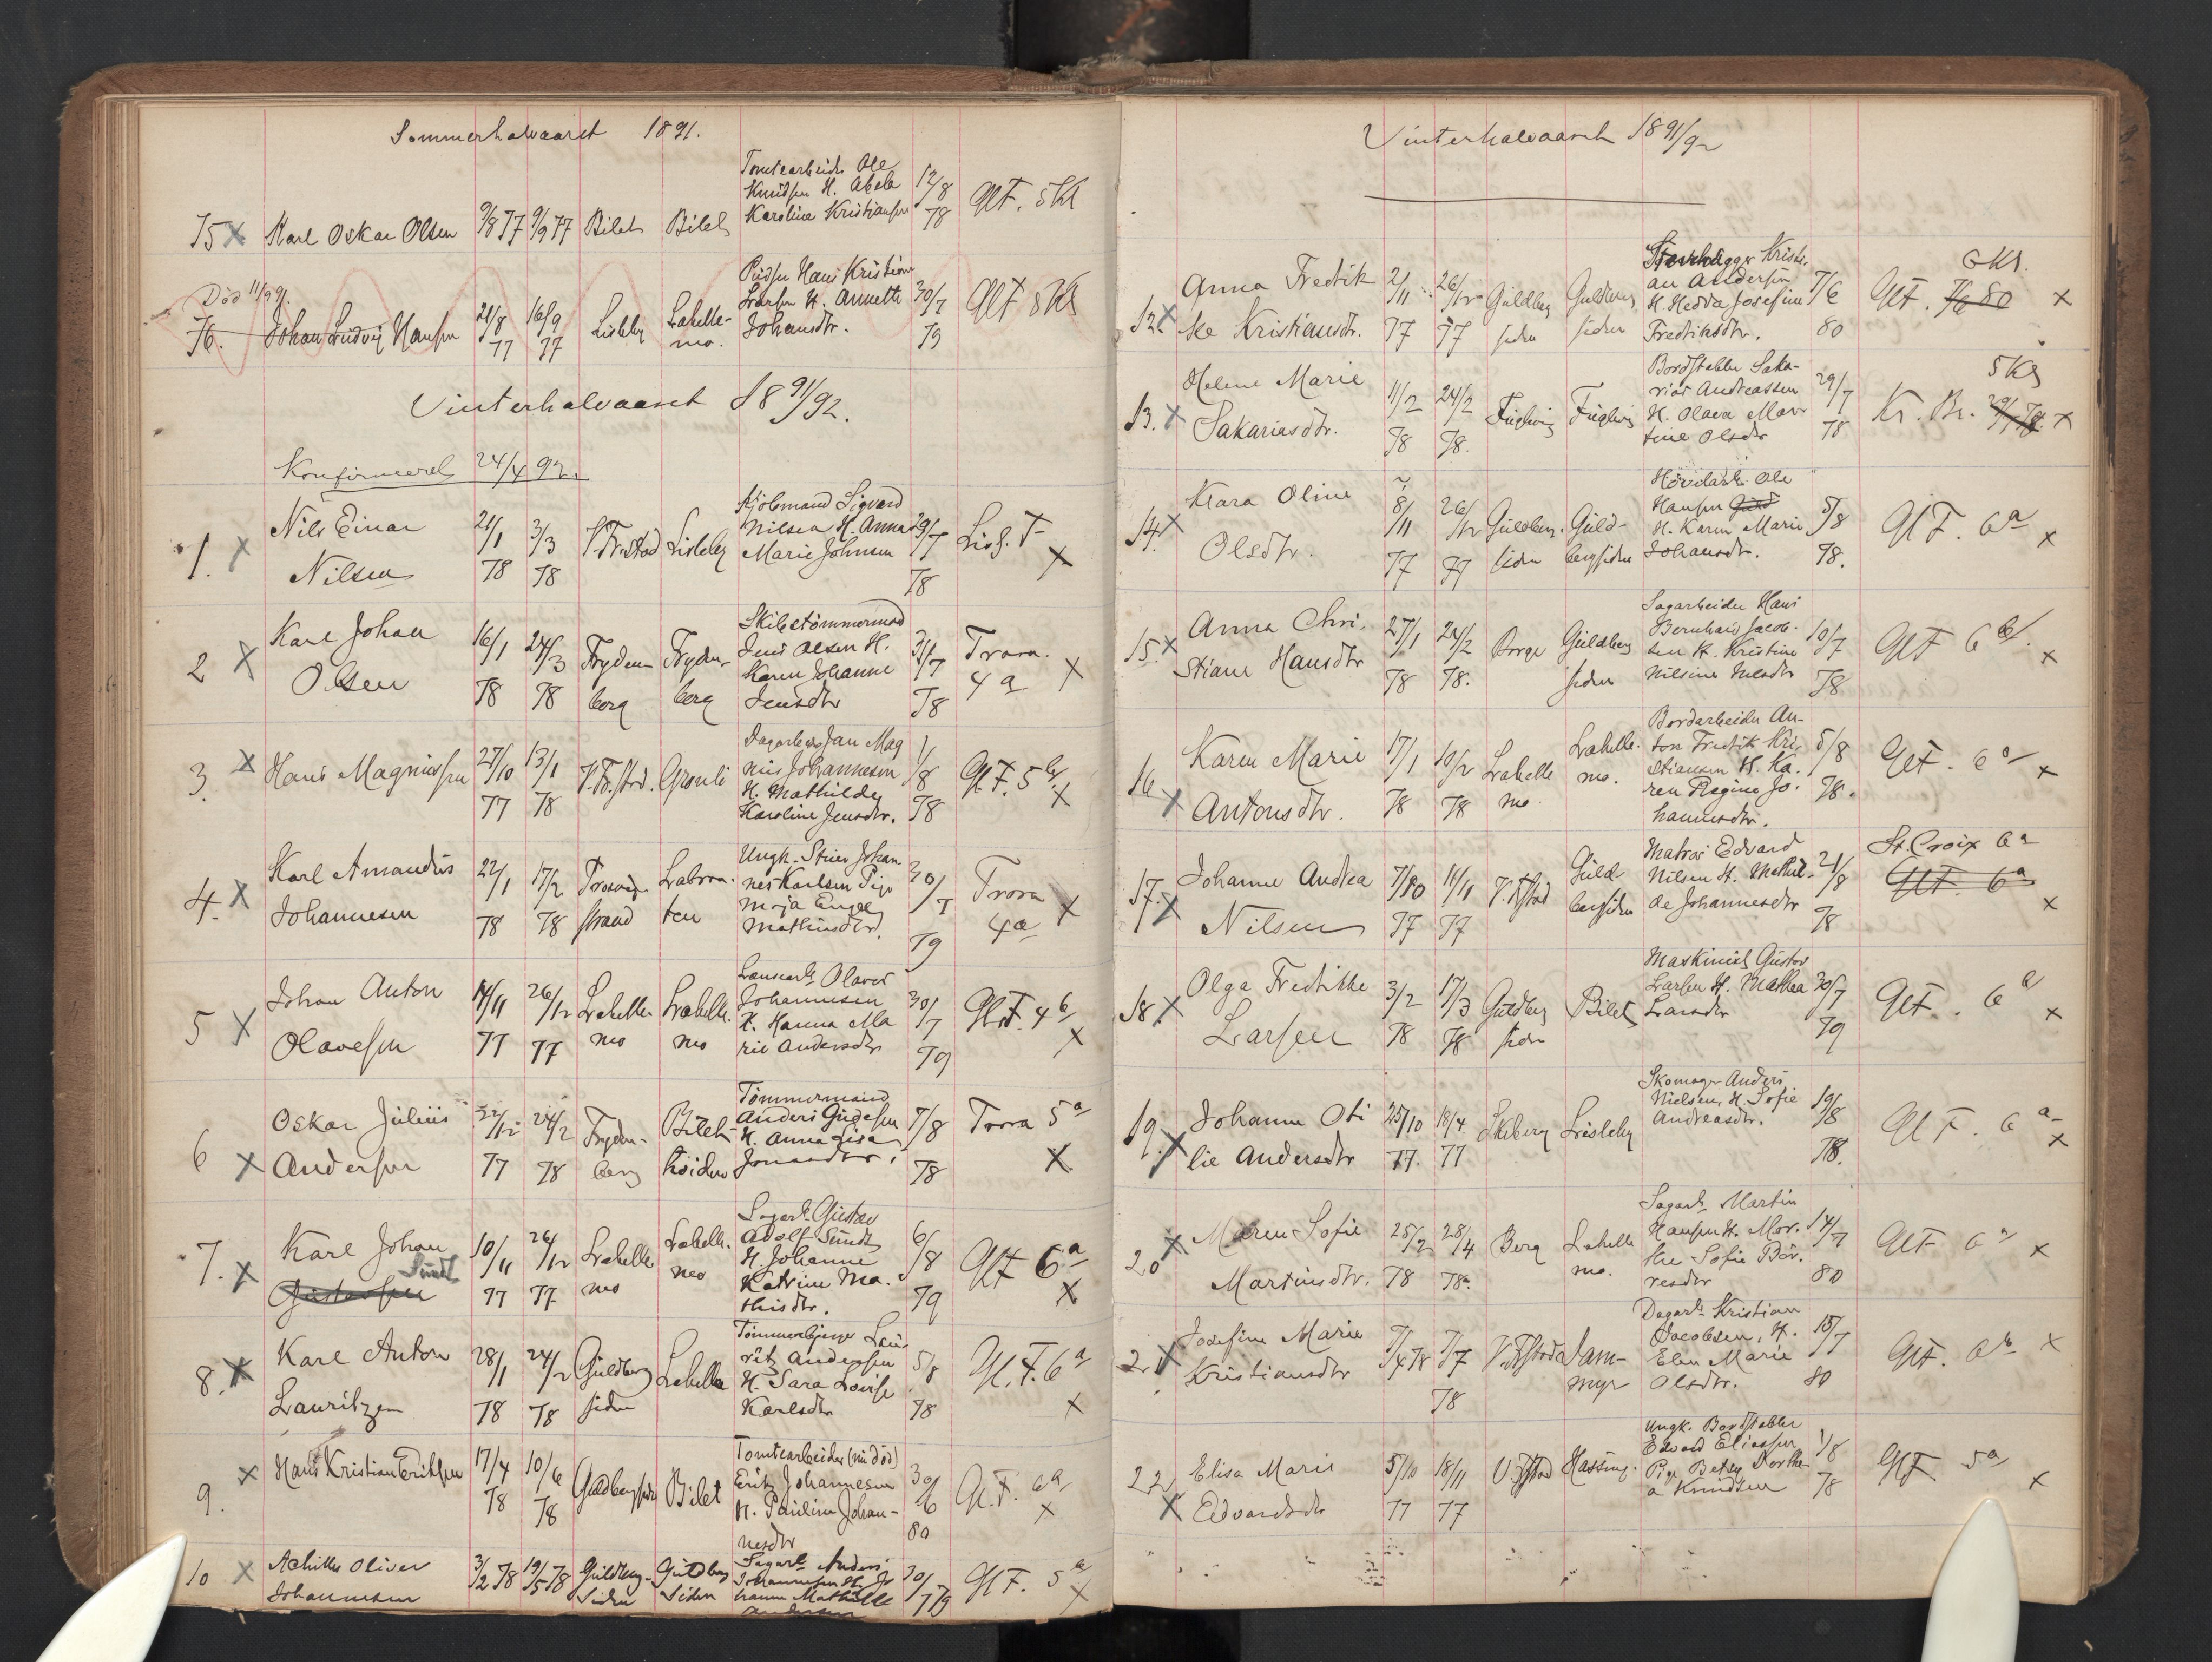 Sommerhalvaaret 1891.
75 X Karl Oskar Olsen 9/8 77 9/9 77 Bilet Bilet Tomtearbeider Ole Knudsen H. Abela Karoline Kristiansen 12/8 78 Gl F. 5 Kl
Død 11/9 91.
76. Johan Ludvig Hansen 21/8 77 16/9 77 Lisleby Labelle-mo. Hans Kristian Larsen H. Annette Johansdtr. 30/7 79 Gl F 5 Kl
Vinterhalvaaret 18 91/92.
Konfirmeret 24/4 92.
1. X Nils Einar Nilsen 21/1 78 3/3 78 V. Fr.stad Lisleby Sigvard Nilsen H. Anna Marie Johnsen 29/7 78 Lisl. F X
2 X Karl Johan Olsen 16/1 78 24/3 78 Frydenberg Frydenberg Skibstømmermand Jens Olsen H. Karen Johanne Jensdtr 31/7 78 Trara. 4 a X
3. X Hans Magnussen 27/10 77 13/1 78 V. Fr.stad. Grønli Dagarb. Jan Magnus Johannesen H. Mathilde Karoline Jensdtr. 1/8 78 Gl. F. 5 b. X
4. X Karl Amandus Johannesen 22/1 78 17/2 78 Trosvigstrand Labraaten Ungk. Johannes Karlsen Pige Maja Engel Mathiusdtr. 30/7 79 Trara 4 a X
5 X Johan Anton Olavesen 14/11 77 26/12 77 Labellemo Labellemo Olaves Johannesen H. Hanna Marie Andersdtr 30/7 79 Gl. F. 4 b X
6 X Oskar Julius Andersen 22/12 77 24/2 78 Frydenberg Bilethöiden Tömmermand Anders Gudesen H. Anna Lisa Jonasdtr. 7/8 78 Trara 5 a X
7. X Karl Johan Gustavsen Sundt 10/11 77 26/12 77 Labellemo Labellemo Sagarb. Gustav Adolf Sundt H. Johanne Katrine Mathisdtr. 6/8 79 Gl F 6 a X
8. X Karl Anton Lauritzen 28/1 78 24/2 78 Guldbergsiden Labelle Lauritz Andersen H. Sara Lovise Karlsdtr 5/8 78 Gl. F. 6 a X
9. X Hans Kristian Eriksen 17/4 78 10/6 78 Guldbergsiden Bilet Tomtearbeider (nu död) Erik Johannesen H. Pauline Johannesdtr 30/6 80 Gl. F. 6 a X
10 X Achilles Oliver Johannesen 3/2 78 19/5 78 Guldbergsiden Guldbergsiden Sagarb. Anders Johannesen H. Johanne Mathilde Andersen 30/7 79 Gl F. 5 a X
Vinterhalvaaret 18 91/92
12. X Anna Fredrikke Kristiansdtr. 2/11 77 26/12 77 Guldbergsiden Guldbergsiden Stenhugger Kristian Andersen H. Hedda Josefine Fredriksdtr. 7/6 80 Gl F. 7/6 80 6 Kl. X
13. X Helene Marie Sakariasdtr. 11/2 78 24/2 78. Fuglevig Fuglevig Bordstabler Sakarias Andreassen H. Olava Martine Olsdtr 29/7 78 Kr. Br. 29/7 78. 5 Kl X
14. X Klara Oline Olsdtr. 8/11 77 26/12 77 Guldbergsiden Guldbergsiden Ole Hansen H. Karen Marie Johansdtr. 5/8 78. Gl F. 6 a X
15. X Anna Christiane Hansdtr 27/1 78 24/2 78. Borge Guldbergsiden Sagarbeider Hans Bernhard Jacobsen H. Kristine Nilsine Nilsdtr 10/7 78 Gl F 6 b. X
16 X Karen Marie Antonsdtr. 17/1 78 10/2 78 Labellemo. Labellemo. Bordarbeider Anton Fredrik Kristiansen H. Karen Regine Johannesdtr. 5/8 78. Gl F. 6 a X
17. X Johanne Andrea Nilsen 7/10 77 11/11 77 V. Fstad Guldbergsiden Matros Edvard Nilsen H. Mathilde Johannesdtr 21/8 78 St. Croix 6 a Gl F. 6 a X
18. X Olga Fredrikke Larsen 3/2 78 17/3 78 Guldbergsiden Bilet Maskinist Gustav Larsen H. Mathea Larsdtr 30/7 79 Gl F. 6 a X
19. X Johanne Otilie Andersdtr 25/10 77. 18/4 77 Skiberg Lisleby Skomager Anders Nielsen, H. Sofie Andreasdtr. 19/8 78. Gl F. 6 a X
20 X Maren Sofie Martinsdtr. 25/2 78 28/4 78. Berg Labellemo. Sagarb. Martin Hansen H. Marthe Sofie Børresdtr 14/7 80 Gl F 6 a X
21 X Josefine Marie Kristiansdtr 7/4 78 7/7 78 V. Fstad Dammyr Dagarb. Kristian Jacobsen, H. Elen Marie Olsdtr. 15/7 80 Gl F. 6 b X
22 X Elisa Marie Edvardsdtr 5/10 77 18/11 77 V. Fstad Hassing. Ungk. Bordstabler Edvard Eliassen Pige Betsy Dorthea Knudsen 1/8 78 Gl F 5 a X